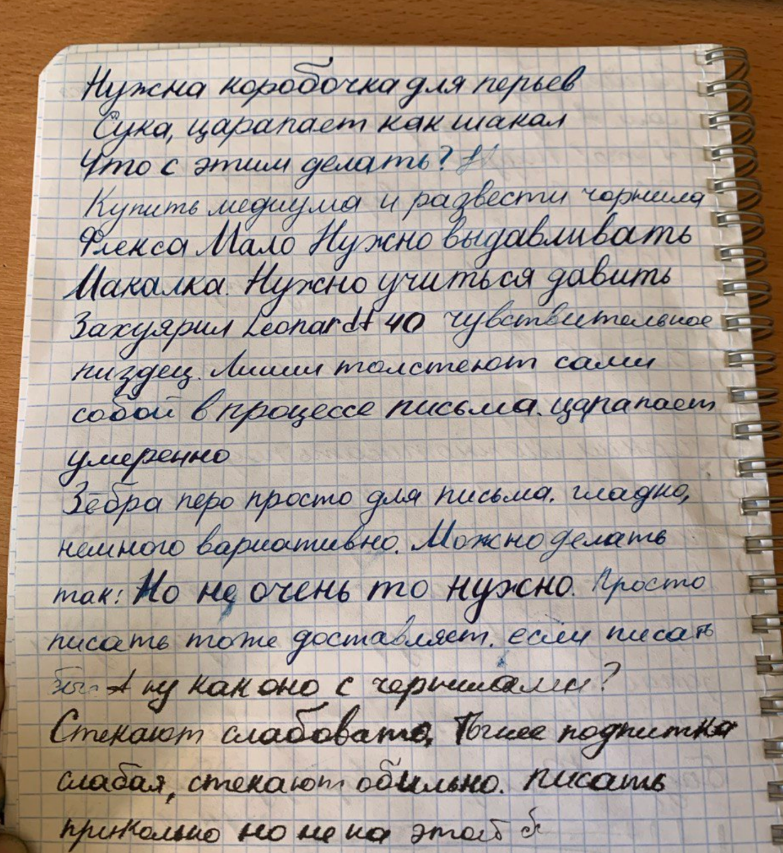 Нужна коробочка для перьев
Сука, царапает как шакал
Что с этим делать?
Купить медиума и развести чорнила
Флекса Мало Нужно выдавливать
Макалка. Нужно учиться давить
Захуярил Leonardt 40 чувствительное
пиздец. Линии толстеют сами
собой в процессе письма. царапает
умеренно
Зебра перо просто для письма. гладко,
немного вариативно. Можно делать
так: Но не очень то нужно. Просто
писать тоже доставляет. если писать
А ну как оно с чернилами?
Стекают слабовато, подпитка
слабая, стекают обильно. писать
прикольно но не на этой